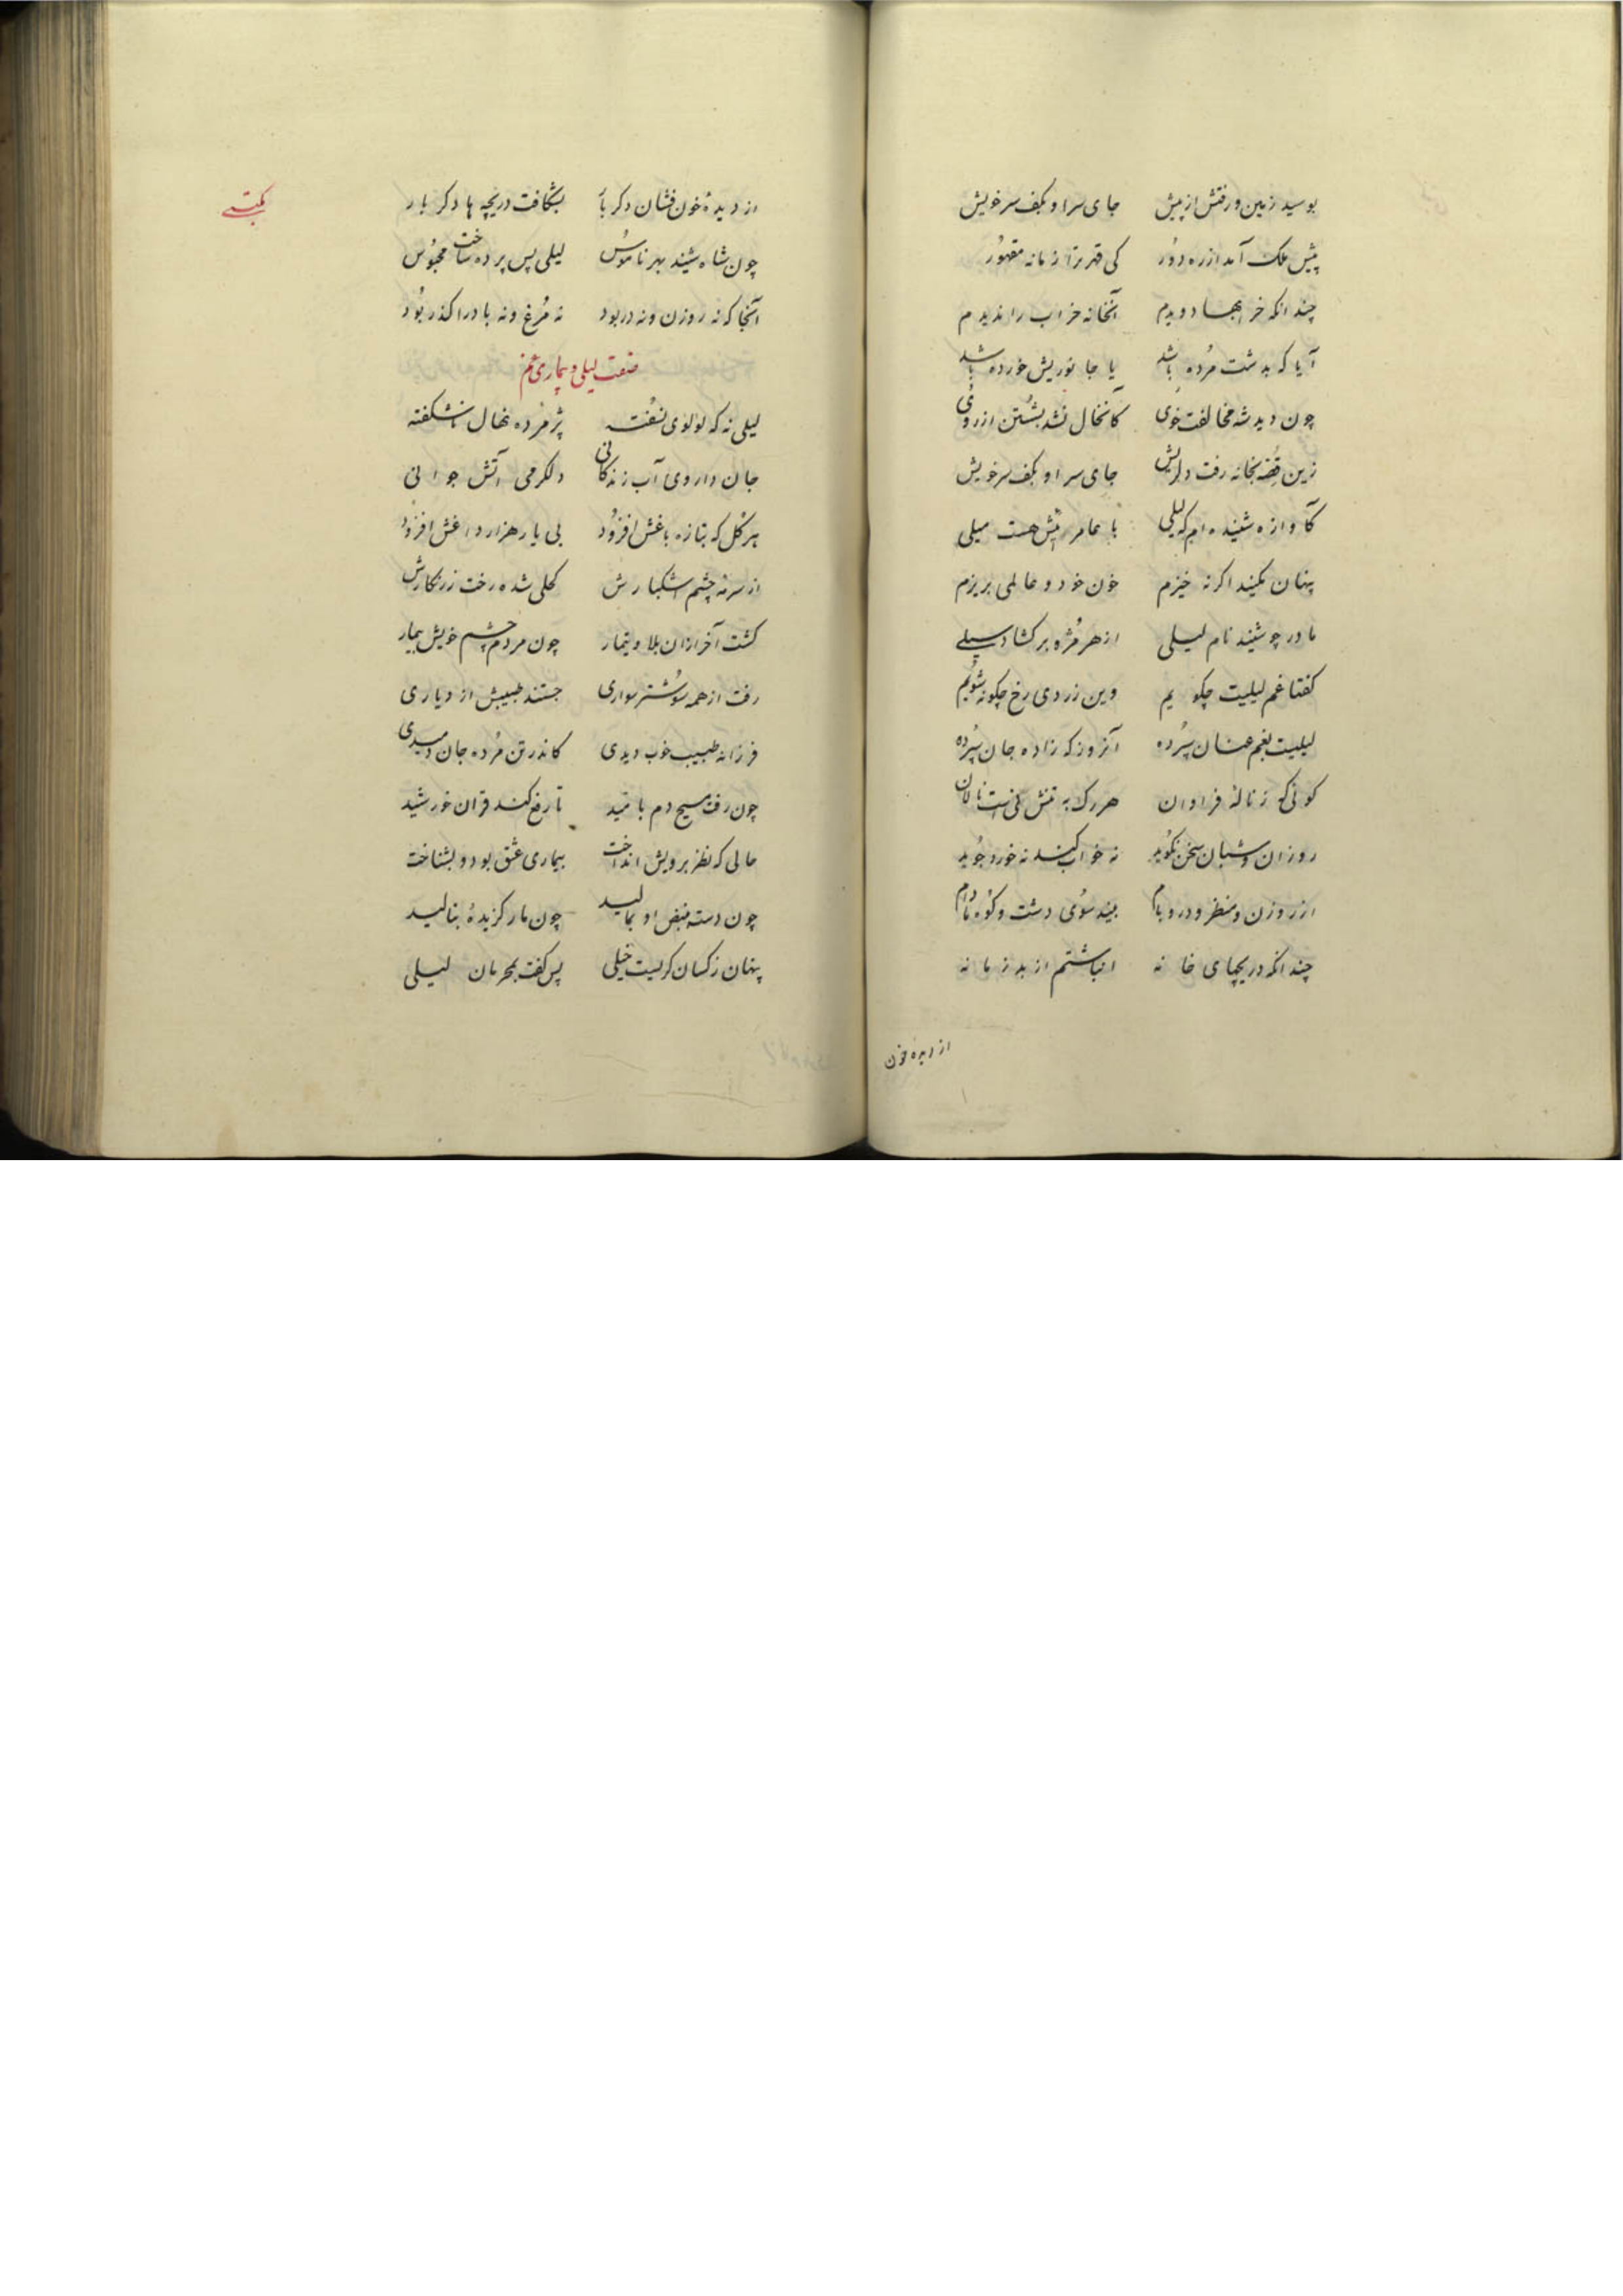 بوسید زمین و رفتش از پیش جای سر او بکف سر خویش
پیش ملک آمد از ره دور کی قهر ترا زمانه مقهور
چندانکه خرابها دویدم آنخانه خراب را ندیدم
آیا که بدشت مرده باشد یا جانوریش خورده باشد
چون دید شه مخالفت خوی کانخال نشد بشستن از روی
زین قصه بخانه رفت دلریش جای سر او بکف سر خویش
کآوازه شنیده‌ام که لیلی با عامریش هست میلی
پنهان نکنید اگر نه خیزم خون خود و عالمی بریزم
مادر چو شنید نام لیلی از هر مژه برکشاد سیلی
کفتا غم لیلیت چکویم وین زردی رخ چکونه شویم
لیلیت بغم عنان سپرده آنروز که زاده جان سپرده
کوئی که ز نالهٔ فراوان هر رک به تنش نی است نالان
روزان و شبان سخن نکوید نه خواب کند نه خورد جوید
از روزن و منظر و در و بام بیند سوی دشت و کوه مادام
چندانکه دریچهای خانه انباشتم از بد زمانه
از دیده خون
از دیدهٔ خون فشان دکر بار بشکافت دریچه ها دکر بار
چون شاه شنید بهر ناموس لیلی پس پرده ساخت محبوس
آنجا که نه روزن و نه در بود نه مرغ و نه باد را کذر بود
صفت لیلی و بیماری غم
لیلی نه که لولوی نسفته پژمرده نهال ناشکفته
جان داروی آب زندکانی دلکرمی آتش جوانی
هر کل که بتازه باغش افزود بی یار هزار داغش افزود
از سرمه چشم اشکبارش کحلی شده رخت زرنکارش
کشت آخر ازان بلا و تیمار چون مردم چشم خویش بیمار
رفت از همه سو شتر سواری جستند طبیبش از دیاری
فرزانه طبیب خوب دیدی کاندر تن مرده جان دمیدی
چون رفت مسیح دم بامید تا رفع کند قران خورشید
حالی که نظر برویش انداخت بیماری عشق بود و بشناخت
چون دست بنبض او بمالید چون مار کزیدهٔ بنالید
پنهان ز کسان کریست خیلی پس کفت بمحرمان لیلی